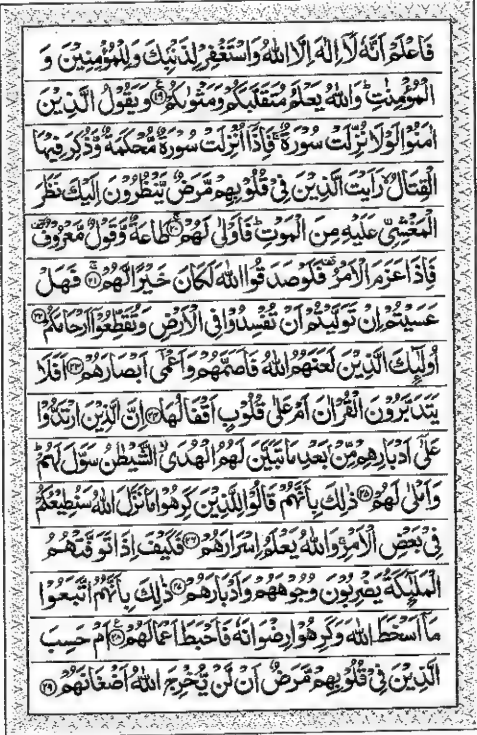 فَاعْلَمْ اَنَّهٗ لَاۤ اِلٰهَ اِلَّا اللّٰهُ وَاسْتَغْفِرْ لِذَنْۢبِكَ وَلِلْمُؤْمِنِيْنَ وَ
الْمُؤْمِنٰتِ ؕ وَاللّٰهُ يَعْلَمُ مُتَقَلَّبَكُمْ وَمَثْوٰىكُمْ ۧ﴿۱۹﴾ وَيَقُوْلُ الَّذِيْنَ
اٰمَنُوْا لَوْلَا نُزِّلَتْ سُوْرَةٌ ۚ فَاِذَاۤ اُنْزِلَتْ سُوْرَةٌ مُّحْكَمَةٌ وَّذُكِرَ فِيْهَا
الْقِتَالُ ۙ رَاَيْتَ الَّذِيْنَ فِيْ قُلُوْبِهِمْ مَّرَضٌ يَّنْظُرُوْنَ اِلَيْكَ نَظَرَ
الْمَغْشِيِّ عَلَيْهِ مِنَ الْمَوْتِ ؕ فَاَوْلٰى لَهُمْ ۚ﴿۲۰﴾ طَاعَةٌ وَّقَوْلٌ مَّعْرُوْفٌ ۟
فَاِذَا عَزَمَ الْاَمْرُ ۟ فَلَوْ صَدَقُوا اللّٰهَ لَكَانَ خَيْرًا لَّهُمْ ۚ﴿۲۱﴾ فَهَلْ
عَسَيْتُمْ اِنْ تَوَلَّيْتُمْ اَنْ تُفْسِدُوْا فِي الْاَرْضِ وَتُقَطِّعُوْۤا اَرْحَامَكُمْ ﴿۲۲﴾
اُولٰٓئِكَ الَّذِيْنَ لَعَنَهُمُ اللّٰهُ فَاَصَمَّهُمْ وَاَعْمٰۤى اَبْصَارَهُمْ ﴿۲۳﴾ اَفَلَا
يَتَدَبَّرُوْنَ الْقُرْاٰنَ اَمْ عَلٰى قُلُوْبٍ اَقْفَالُهَا ﴿۲۴﴾ اِنَّ الَّذِيْنَ ارْتَدُّوْا
عَلٰۤى اَدْبَارِهِمْ مِّنْۢ بَعْدِ مَا تَبَيَّنَ لَهُمُ الْهُدَى ۙ الشَّيْطٰنُ سَوَّلَ لَهُمْ ؕ
وَاَمْلٰى لَهُمْ ﴿۲۵﴾ ذٰلِكَ بِاَنَّهُمْ قَالُوْا لِلَّذِيْنَ كَرِهُوْا مَا نَزَّلَ اللّٰهُ سَنُطِيْعُكُمْ
فِيْ بَعْضِ الْاَمْرِ ۖۚ وَاللّٰهُ يَعْلَمُ اِسْرَارَهُمْ ﴿۲۶﴾ فَكَيْفَ اِذَا تَوَفَّتْهُمُ
الْمَلٰٓئِكَةُ يَضْرِبُوْنَ وُجُوْهَهُمْ وَاَدْبَارَهُمْ ﴿۲۷﴾ ذٰلِكَ بِاَنَّهُمُ اتَّبَعُوْا
مَاۤ اَسْخَطَ اللّٰهَ وَكَرِهُوْا رِضْوَانَهٗ فَاَحْبَطَ اَعْمَالَهُمْ ۧ﴿۲۸﴾ اَمْ حَسِبَ
الَّذِيْنَ فِيْ قُلُوْبِهِمْ مَّرَضٌ اَنْ لَّنْ يُّخْرِجَ اللّٰهُ اَضْغَانَهُمْ ﴿۲۹﴾